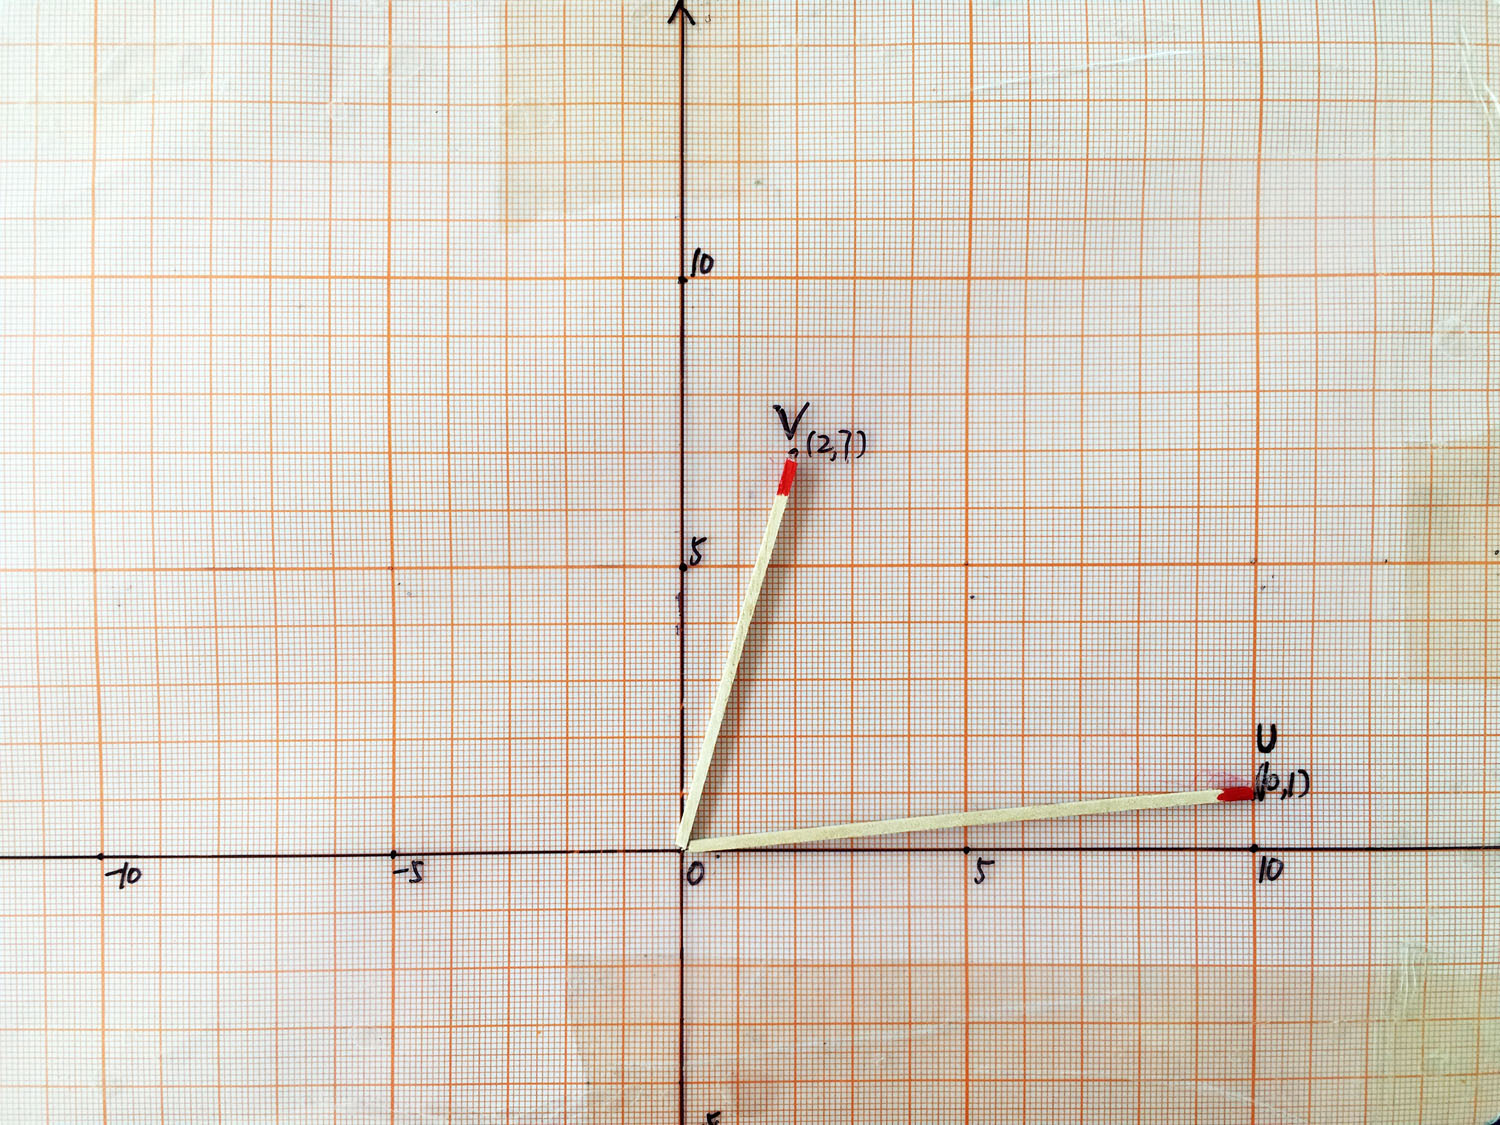 10
V
(2,7)
5
U
(10,1)
-10
-5
0
5
10